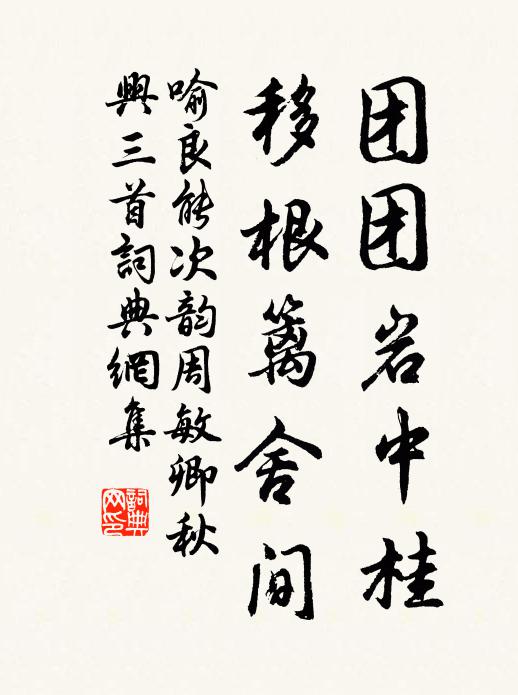 团团岩中桂
移根篱舍间
喻良能次韵周敏卿秋
興三首詞典網集
詞典
网印